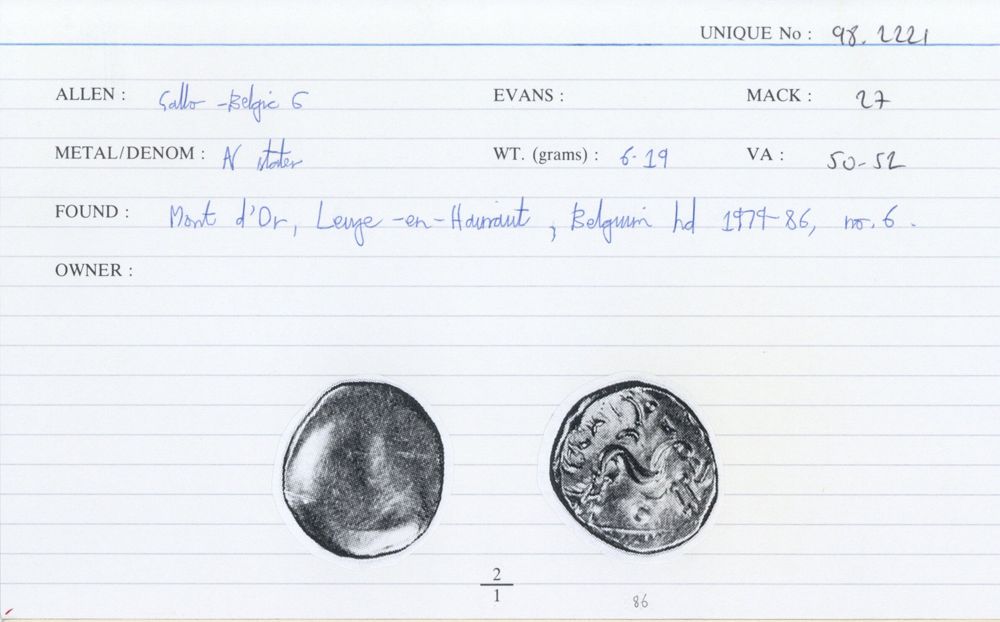 UNIQUE No : 98.2221
ALLEN : Gallo-Belgic E EVANS : MACK : 27
METAL/DENOM : AV stater WT. (grams) : 6.19 VA : 50-52
FOUND : Mont d'Or, Leuze-en-Hainaut, Belgium hd 1979-86, no. 6.
OWNER :
2
1
86